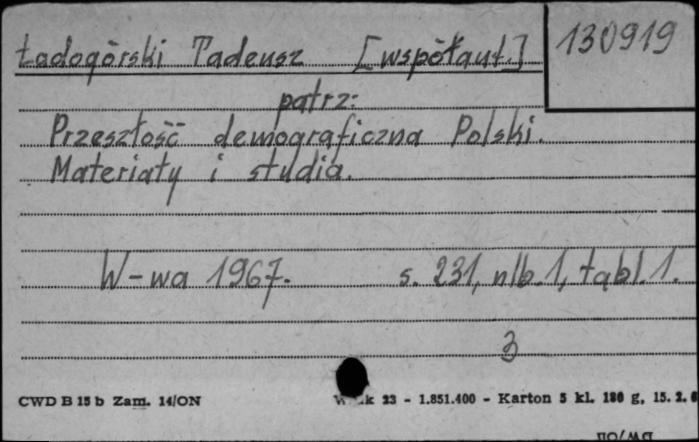 Ładogórski Tadeusz [współaut.]
130919
patrz:
Przeszłość demograficzna Polski.
Materiały i studia.
W-wa 1967. s. 231, nlb. 1, tabl. 1.
3
CWD B 15 b Zam. 14/ON
23 - 1.851.400 - Karton 5 kl. 180 g, 15. 2. 6